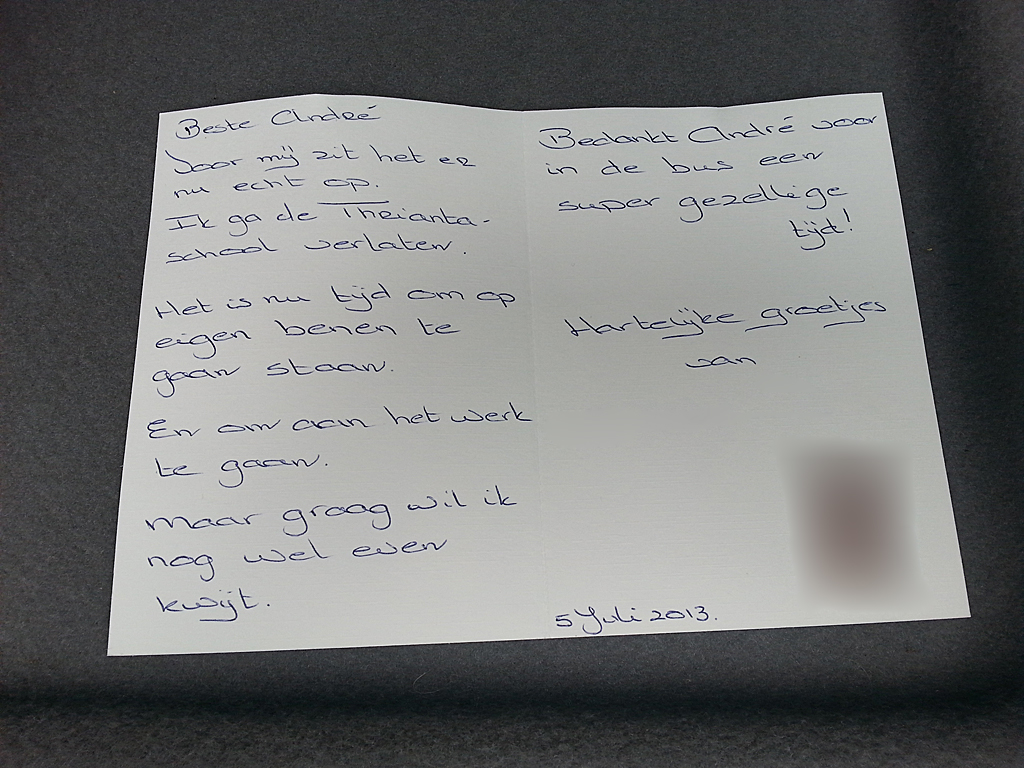 Beste André
Voor mij zit het er
nu echt op.
Ik ga de Theianta-
school verlaten.
Het is nu tijd om op
eigen benen te
gaan staan.
En om aan het werk
te gaan.
Maar graag wil ik
nog wel even
kwijt.
Bedankt André voor
in de bus een
super gezellige
tijd!
Hartelijke groetjes
van
5 Juli 2013.